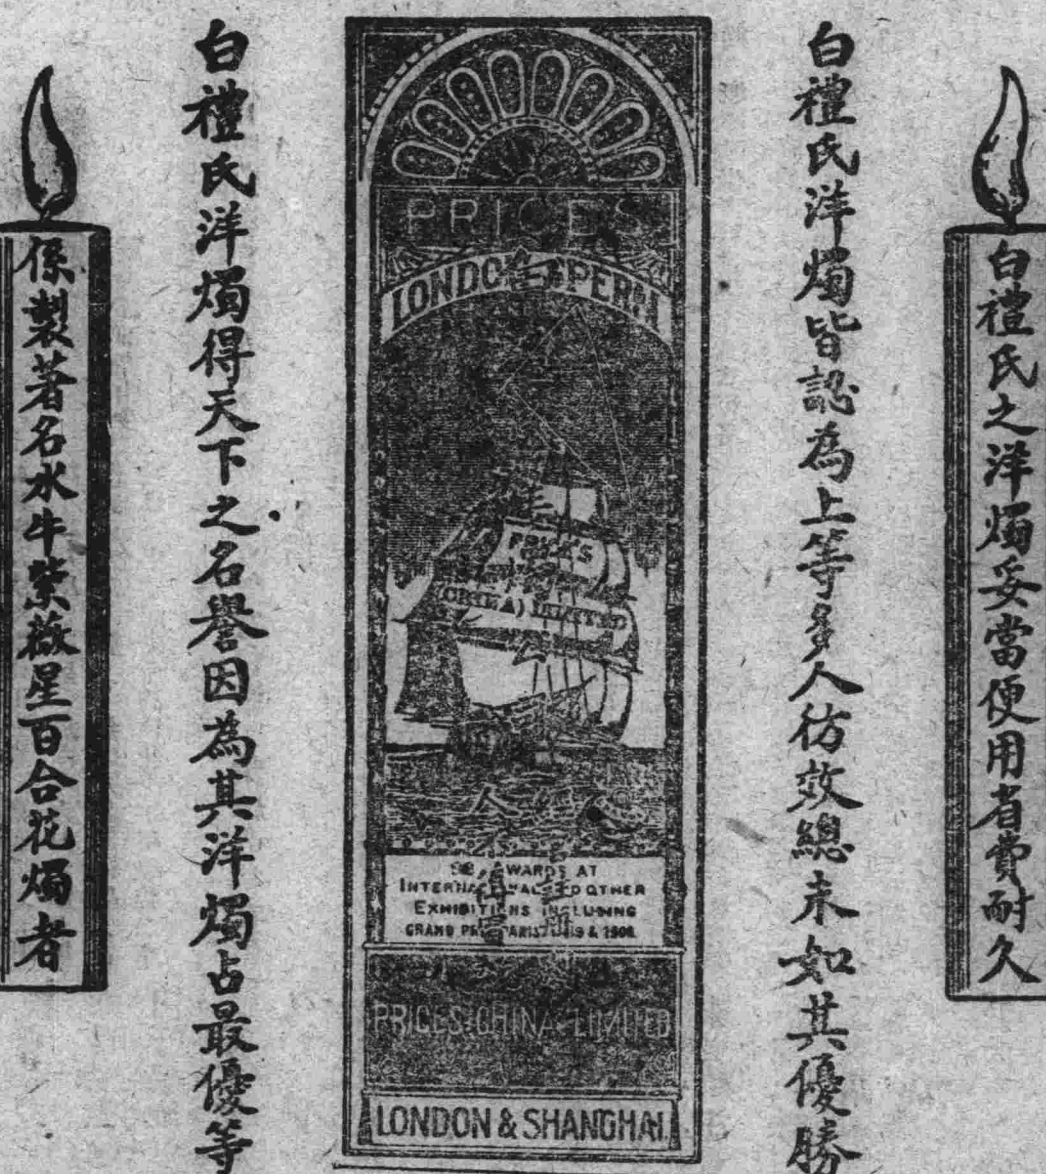 白禮氏之洋燭妥當便用省費耐久
白禮氏洋燭皆認為上等多人彷效總未如其優勝
PRICE'S
LONDON SPERM
PRICE'S
(CHINA) LIMITED
AWARDS AT
INTERNATIONAL AND OTHER
EXHIBITIONS INCLUDING
GRAND PRIX PARIS
& 1900
PRICES CHINA LIMITED
LONDON & SHANGHAI
白禮氏洋燭得天下之名譽因為其洋燭占最優等
係製著名水牛紫薇星百合花燭者